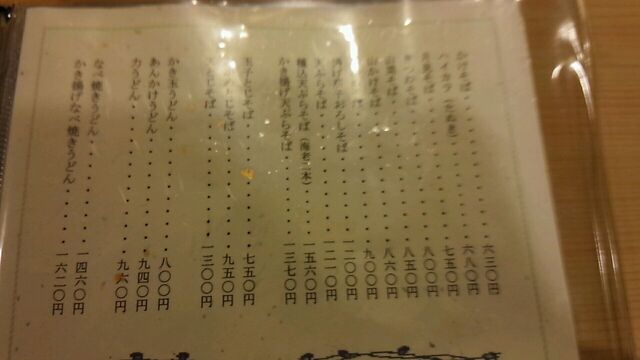 かけそば・・・・・・・・・・・・六三〇円
ハイカラ（たぬき）・・・・・・・・六八〇円
そば・・・・・・・・・・・・七五〇円
そば・・・・・・・・・・・・八〇〇円
そば・・・・・・・・・・・・八五〇円
山菜そば・・・・・・・・・・・・八六〇円
山かけそば・・・・・・・・・・・九〇〇円
一二〇〇円
おろしそば・・・・・・・・一二一〇円
天ぷらそば
天ぷらそば（海老二本）・・・・一五六〇円
かき揚げ天ぷらそば・・・・・・・一三七〇円
玉子とじそば・・・・・・・・・・七五〇円
とじそば・・・・・・・・・・九五〇円
とじそば・・・・・・・・・・一三〇〇円
かき玉うどん・・・・・・・・・・八〇〇円
あんかけうどん・・・・・・・・・九四〇円
力うどん・・・・・・・・・・・・九六〇円
なべ焼きうどん・・・・・・・・・一四六〇円
かき揚げなべ焼きうどん・・・・・一六二〇円